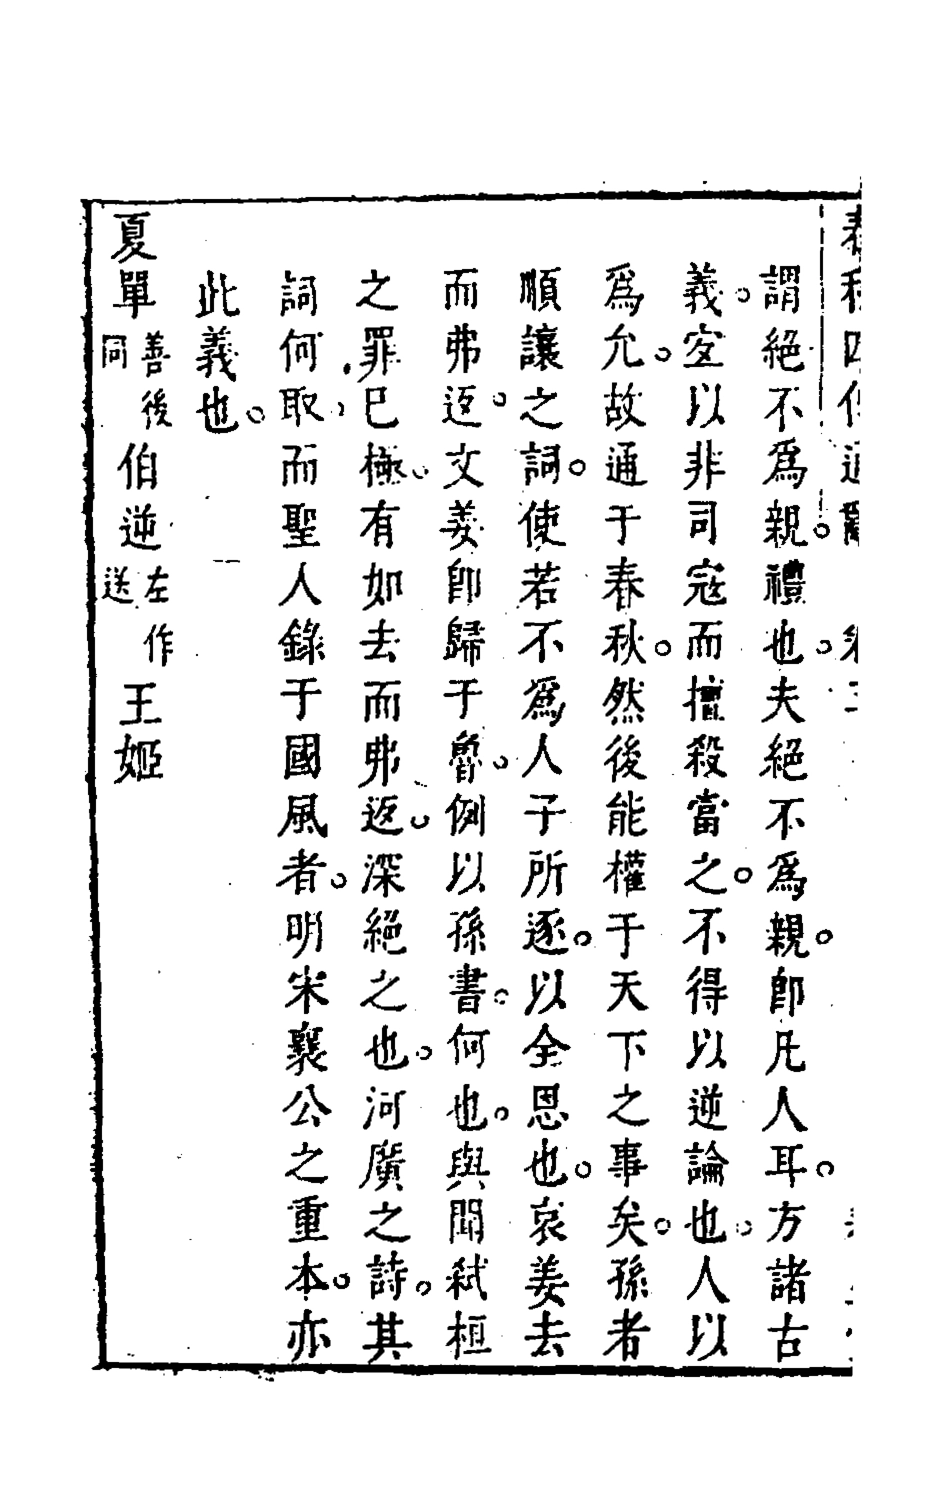 謂絕不爲親禮也夫絕不爲親卽凡人耳方諸古
義宜以非司寇而擅殺當之不得以逆論也人以
爲允故通于春秋然後能權于天下之事矣孫者
順讓之詞使若不爲人子所逐以全恩也哀姜去
而弗返文姜卽歸于魯例以孫書何也與聞弒桓
之罪已極有如去而弗返深絕之也河廣之詩其
詞何取而聖人錄于國風者明宋襄公之重本亦
此義也
夏單善後同伯逆左作送王姬